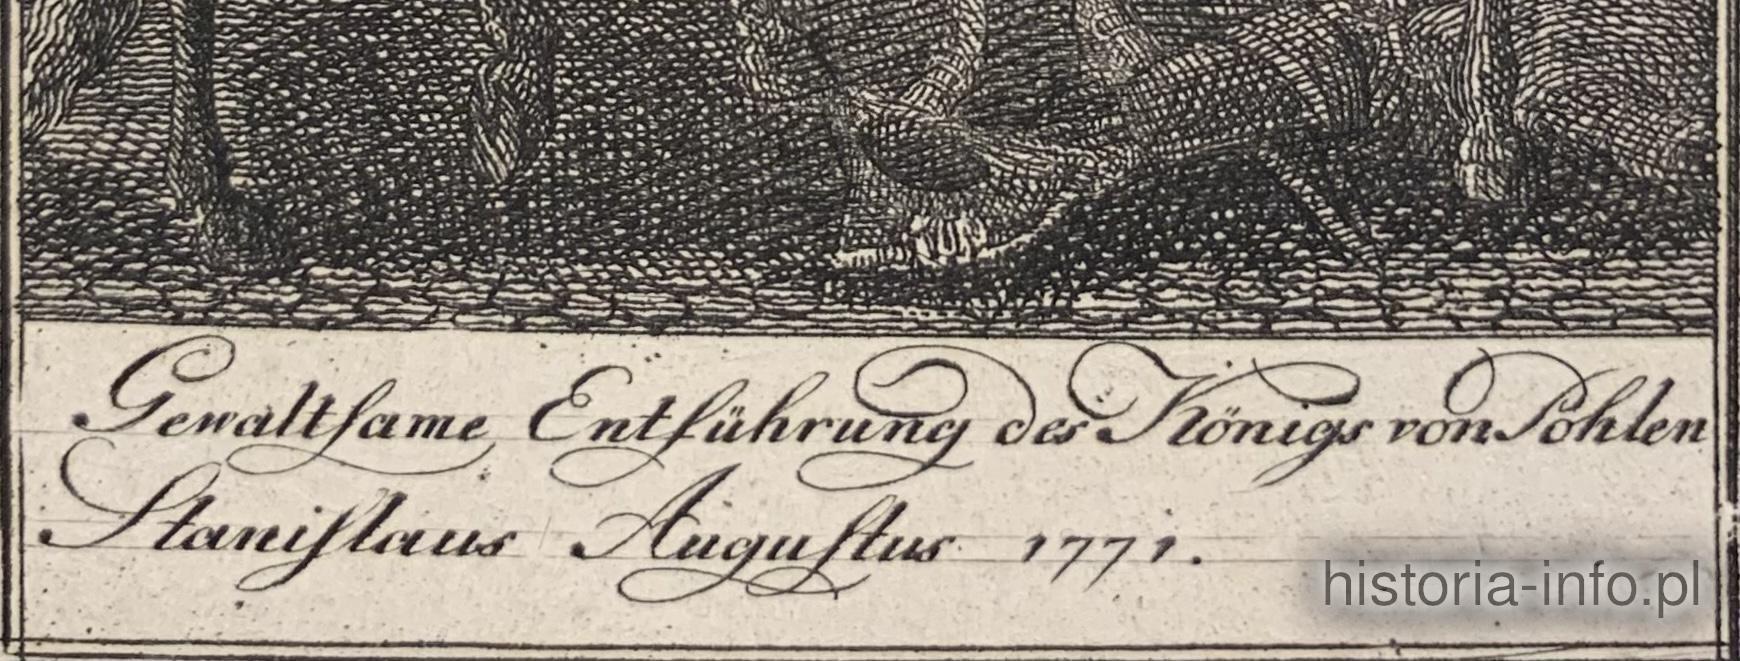 Gewaltſame Entführung des Königs von Pohlen
Staniſlaus Auguſtus 1771.
historia-info.pl